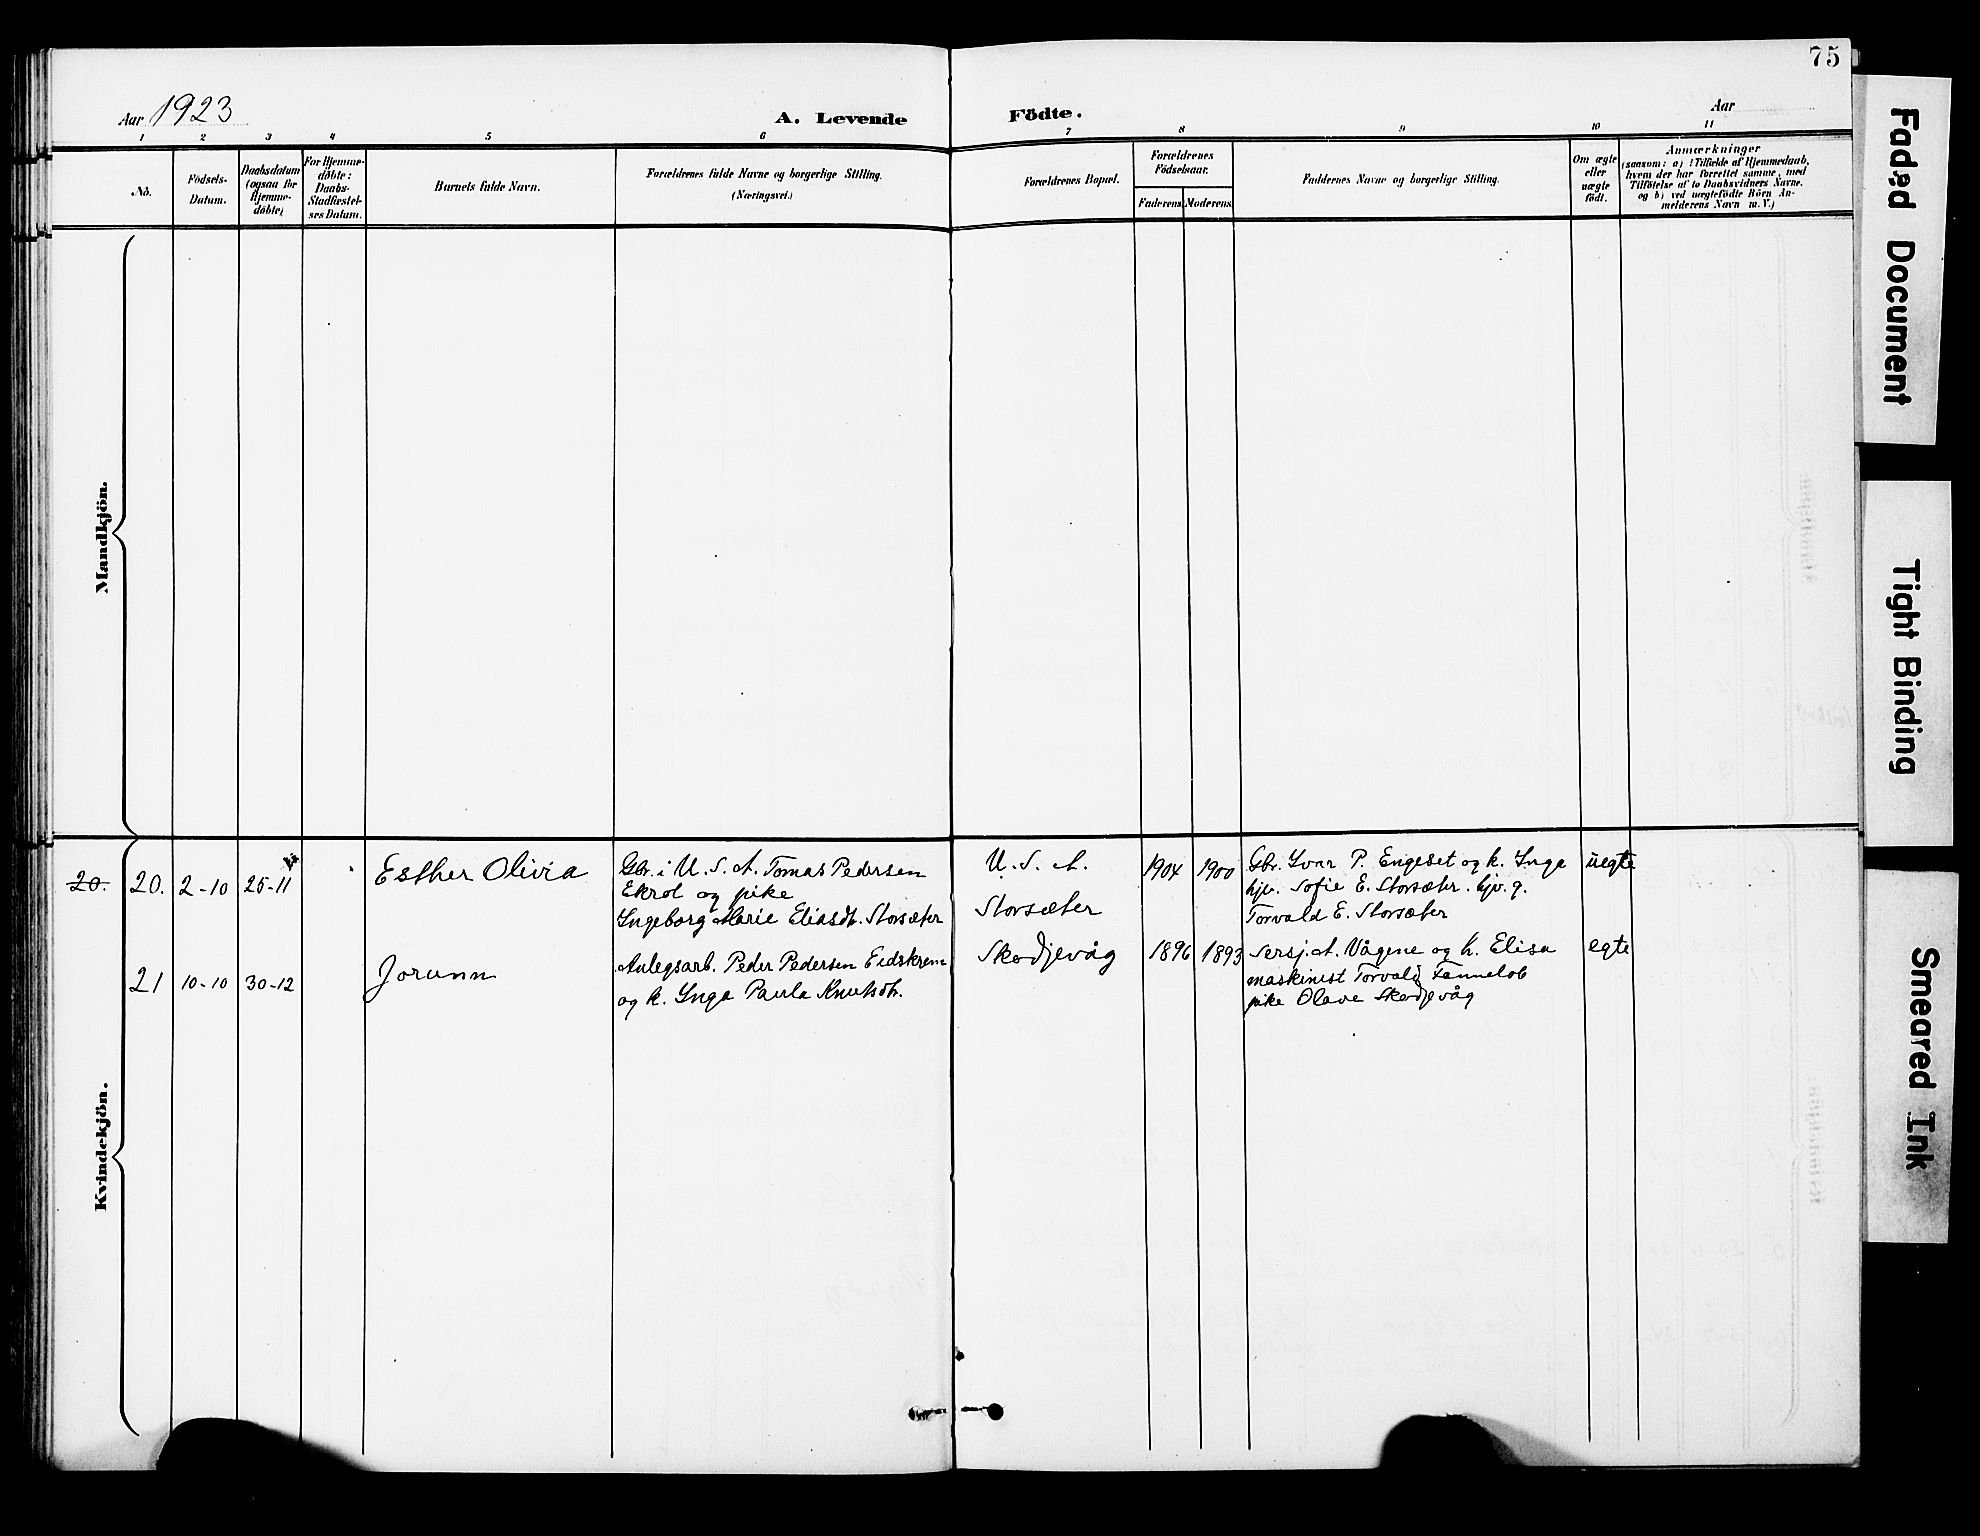 75
Aar 1923
A. Levende
Födte.
Aar
1 2 3 4 5 6 7 8 9 10 11
No.
Födsels-
Datum.
Daabsdatum
(ogsaa for
Hjemme-
döbte)
For Hjemme-
döbte:
Daabs-
Stadfæstel-
ses Datum.
Barnets fulde Navn.
Forældrenes fulde Navne og borgerlige Stilling.
(Næringsvei.)
Forældrenes Bopæl.
Forældrenes
Födselsaar.
Faderens Moderens
Faddernes Navne og borgerlige Stilling.
Om ægte
eller
uægte
född.
Anmærkninger
(saasom: a) i Tilfælde af Hjemmedaab,
hvem der har forrettet samme, med
Tilföielse af to Daabsvidners Navne,
og b) ved uægtefödte Börn An-
melderens Navn m. V.)
Mandkjön.
Kvindekjön.
20. 20. 2-10 25-11
Esther Olivia
Gbr. i U. S. A. Tomas Pedersen
Ekrol og pike
Ingeborg Marie Eliasdt. Storsæter
U. S. A.
Storsæter
1904 1900
Gbr. Ivar P. Engeset og k. Inga
hjv. Sofie E. Storsæter. hjv. g.
Torvald E. Storsæter
uegte
21 10-10 30-12
Jorunn
Anlegsarb. Peder Pedersen Eidskrem
og k. Inga Paula Knutsdt.
Skodjevåg
1896 1893
Sersj. A. Vågene og k. Elisa
maskinist Torvald Tannelob
pike Olave Skodjevåg
egte
Faded Document
Tight Binding
Smeared Ink